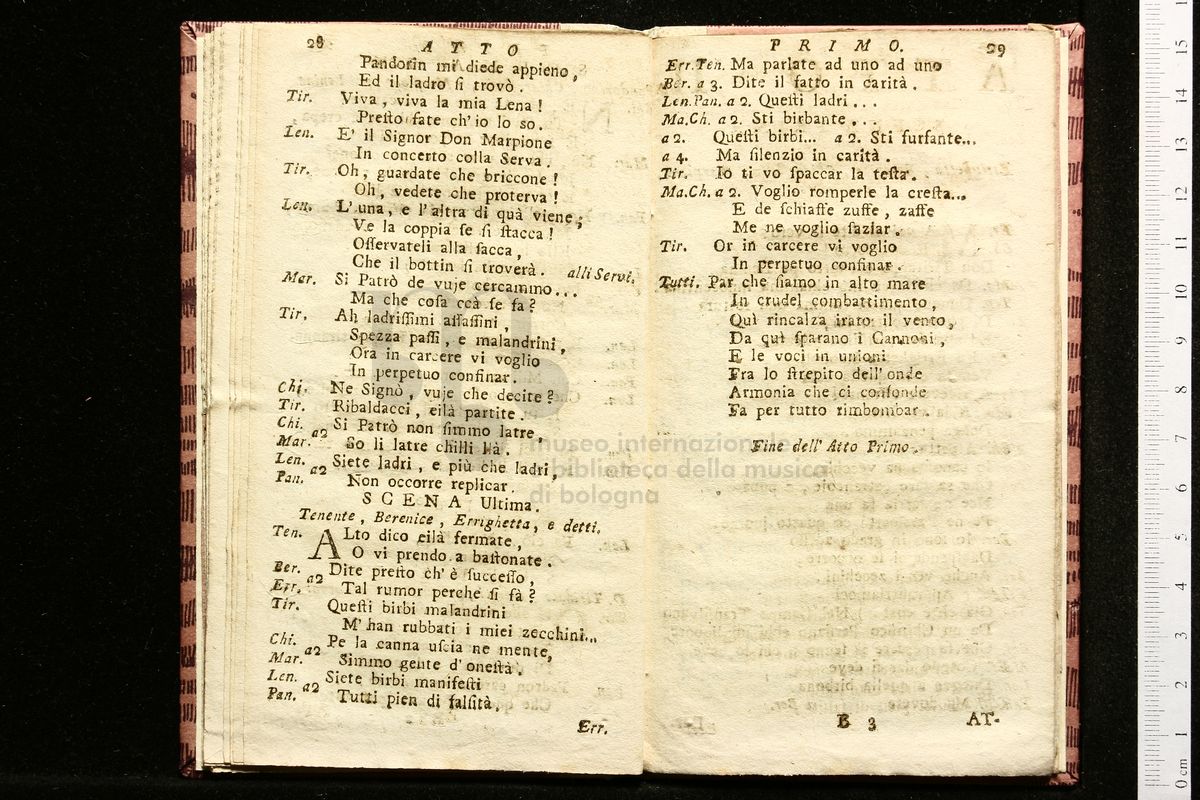 28 ATTO
Pandorin mi diede appieno,
Ed il ladro ſi trovò.
Tir. Viva, viva la mia Lena!
Preſto fate ch'io lo so.
Len. E' il Signor Don Marpione
In concerto colla Serva.
Tir. Oh, guardate che briccone!
Oh, vedete che proterva!
Len. L'una, e l'altra di quà viene;
Ve la coppia ſe ſi ſtacca!
Oſſervateli alla ſacca,
Che il bottin ſi troverà. alli Servi.
Mar. Si Patrò de vuje cercammo...
Ma che coſa ccà ſe fa?
Tir. Ah ladriſſimi aſſaſſini,
Spezza paſſi, e malandrini,
Ora in carcere vi voglio
In perpetuo confinar.
Chi. Ne Signò, vuje che decite?
Tir. Ribaldacci, eilà partite.
Chi. a2 Si Patrò non ſimmo latre,
Mar. So li latre chilli llà.
Len. a2 Siete ladri, e più che ladri,
Pan. Non occorre replicar.
SCENA Ultima.
Tenente, Berenice, Errighetta, e detti.
Ten. ALto dico eilà fermate,
O vi prendo a baſtonate.
Ber. a2 Dite preſto ch'è ſucceſſo,
Err. Tal rumor perche ſi fà?
Tir. Queſti birbi malandrini
M'han rubbati i miei zecchini...
Chi. a2 Pe la canna uſcia ne mente,
Mar. Simmo gente d'oneſtà.
Len. a2 Siete birbi manifeſti
Pan. Tutti pien di falſità,
Err.
PRIMO. 29
Err.Ten. Ma parlate ad uno ad uno
Ber. a 3. Dite il fatto in carità.
Len.Pan. a 2. Queſti ladri...
Ma.Ch. a 2. Sti birbante...
a 2. Queſti birbi... a 2. Sti furfante...
a 4. Ma ſilenzio in carità.
Tir. Io ti vo ſpaccar la teſta.
Ma.Ch. a 2. Voglio romperle la creſta...
E de ſchiaffe zuffe, zaffe
Me ne voglio ſaziar.
Tir. Or in carcere vi voglio
In perpetuo confinar.
Tutti. Par che ſiamo in alto mare
In crudel combattimento,
Quì rincalza irato il vento,
Da quì ſparano i Cannoni,
E le voci in unioni
Fra lo ſtrepito dell'onde
Armonia che ci confonde
Fa per tutto rimbombar.
Fine dell' Atto Primo.
B 3 AT-
museo internazionale
biblioteca della musica
di bologna
0 cm 1 2 3 4 5 6 7 8 9 10 11 12 13 14 15